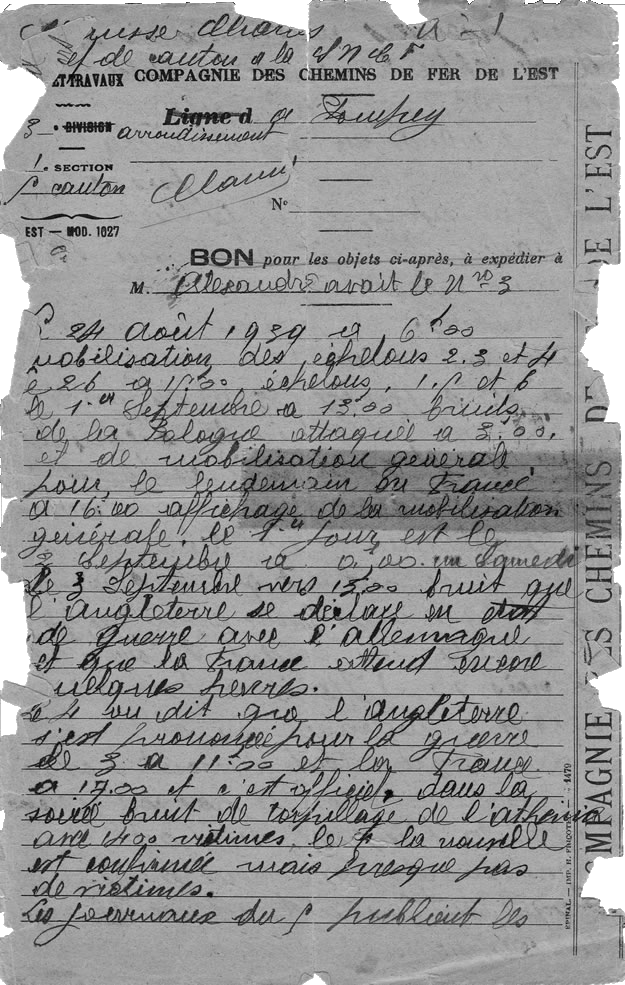 Suisse
et de canton a la S N C F
ET TRAVAUX COMPAGNIE DES CHEMINS DE FER DE L'EST
Ligne d de Pompey
3 e DIVISION arrondissement
1. SECTION
canton
N°
EST — MOD. 1027
BON pour les objets ci-après, à expédier à
M. Alexandre avait le N ro 3
24 août 1939 a 6h00
mobilisation des échelons 2.3 et 4
26 a échelons, 1. 5 et 6
le 1er Septembre a 13.00 bruits
de la Pologne attaquée a 3.00.
et de mobilisation générale
pour le lendemain en France
a 16.00 affichage de la mobilisation
générale. le 1er jour est le
2 Septembre a 0,00. un Samedi
Le 3 Septembre vers 13.00 bruit que
l'angleterre se déclare en état
de guerre avec l'allemagne
et que la France attend encore
quelques heures.
Le 4 on dit que l'angleterre
s'est prononcée pour la guerre
le 3 a 11.00 et la France
a 17.00 et c'est officiel, dans la
soirée bruit de torpillage de l'athenia
avec 1400 victimes, le 5 la nouvelle
est confirmée mais presque pas
de victimes.
Les journaux du 5 publient les
COMPAGNIE DES CHEMINS DE FER DE L'EST
EPINAL. — IMP. H. FRICOTEL — 1479